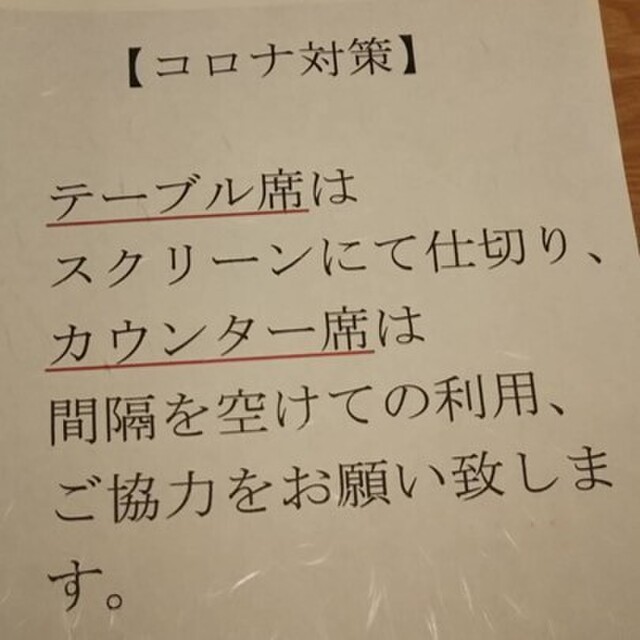 【コロナ対策】
テーブル席は
スクリーンにて仕切り、
カウンター席は
間隔を空けての利用、
ご協力をお願い致しま
す。